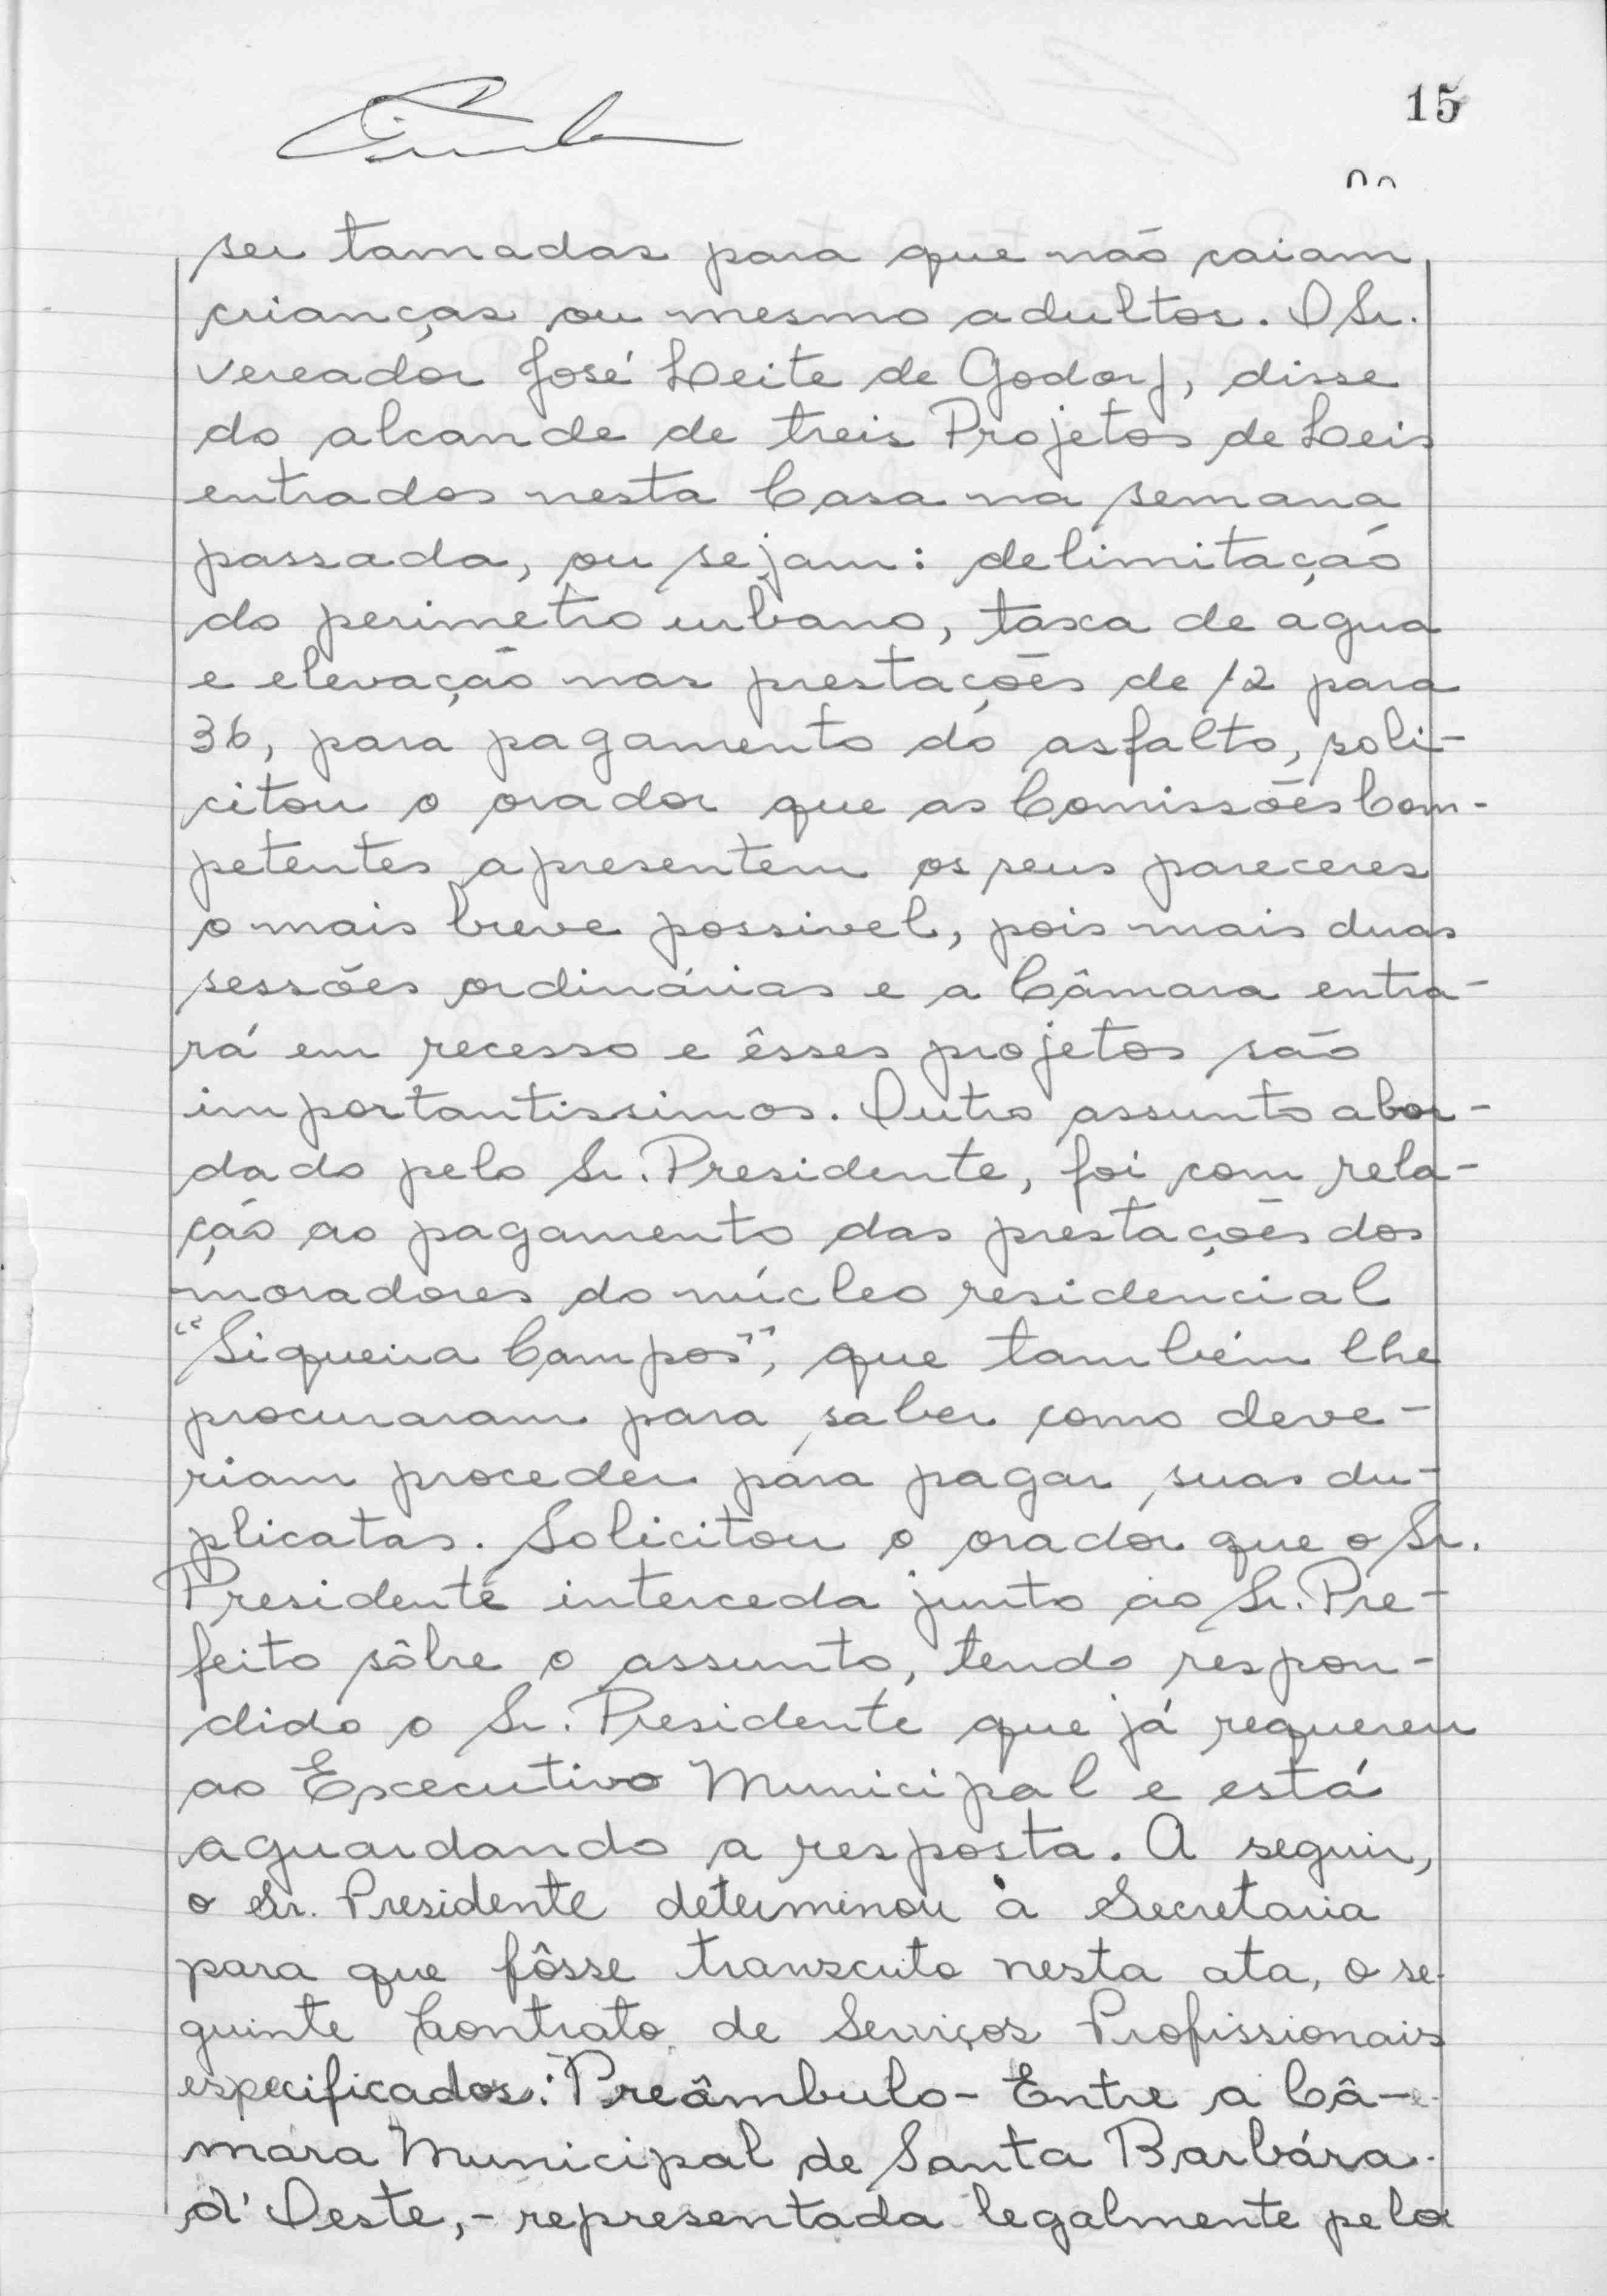 15
ser tomadas para que não caiam
crianças ou mesmo adultos. O Sr.
vereador José Leite de Godoy, disse
do alcande de treis Projetos de Leis
entrados nesta Casa na semana
passada, ou sejam: delimitação
do perimetro urbano, taxa de agua
e elevação nas prestações de 12 para
36, para pagamento do asfalto, soli-
citou o orador que as Comissões Com-
petentes apresentem os seus pareceres
o mais breve possivel, pois mais duas
sessões ordinárias e a Câmara entra-
rá em recesso e êsses projetos são
importantissimos. Outro assunto abor-
dado pelo Sr. Presidente, foi com rela-
ção ao pagamento das prestações dos
moradores do núcleo residencial
"Siqueira Campos", que também lhe
procuraram para saber como deve-
riam proceder para pagar suas du-
plicatas. Solicitou o orador que o Sr.
Presidente interceda junto ao Sr. Pre-
feito sôbre o assunto, tendo respon-
dido o Sr. Presidente que já requereu
ao Executivo Municipal e está
aguardando a resposta. A seguir,
o Sr. Presidente determinou à Secretaria
para que fôsse transcrito nesta ata, o se-
guinte Contrato de Serviços Profissionais
especificados: Preâmbulo - Entre a Câ-
mara Municipal de Santa Barbára
d'Oeste, - representada legalmente pelo